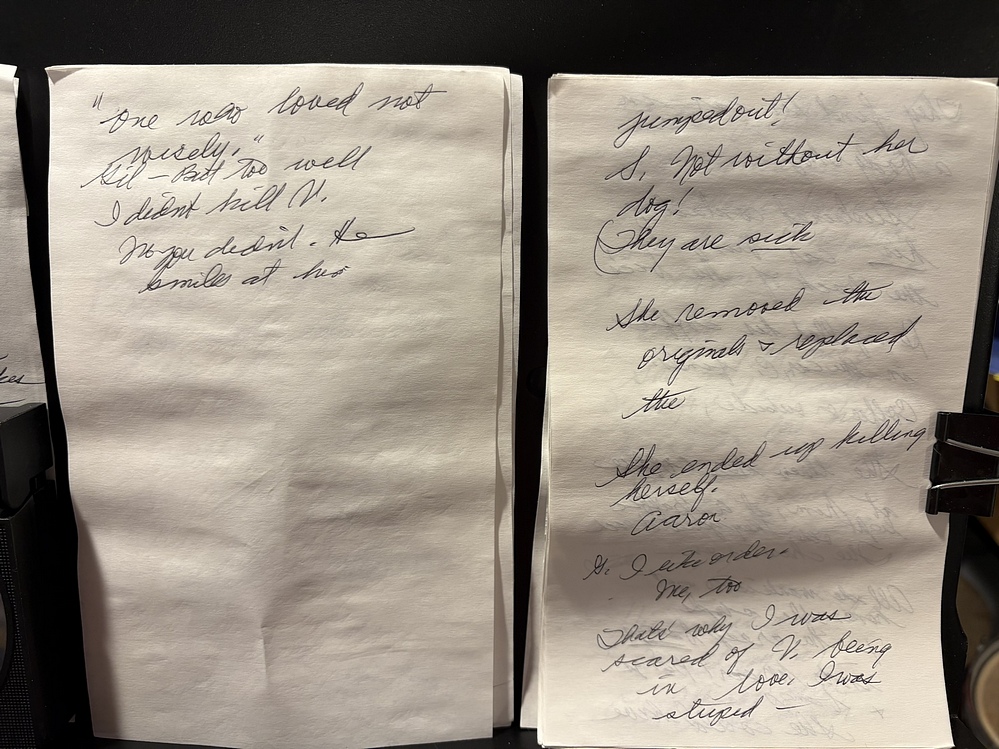 "One who loved not
wisely."
Gil - But too well
I didnt kill V.
No you didn't. He
smiles at him
jumped out!
S. Not without her
dog!
(They are sick
She removed the
originals & replaced
the
She ended up killing
herself.
Aaron
G. I like order.
Me, too
Thats why I was
scared of V. being
in love. I was
stupid -